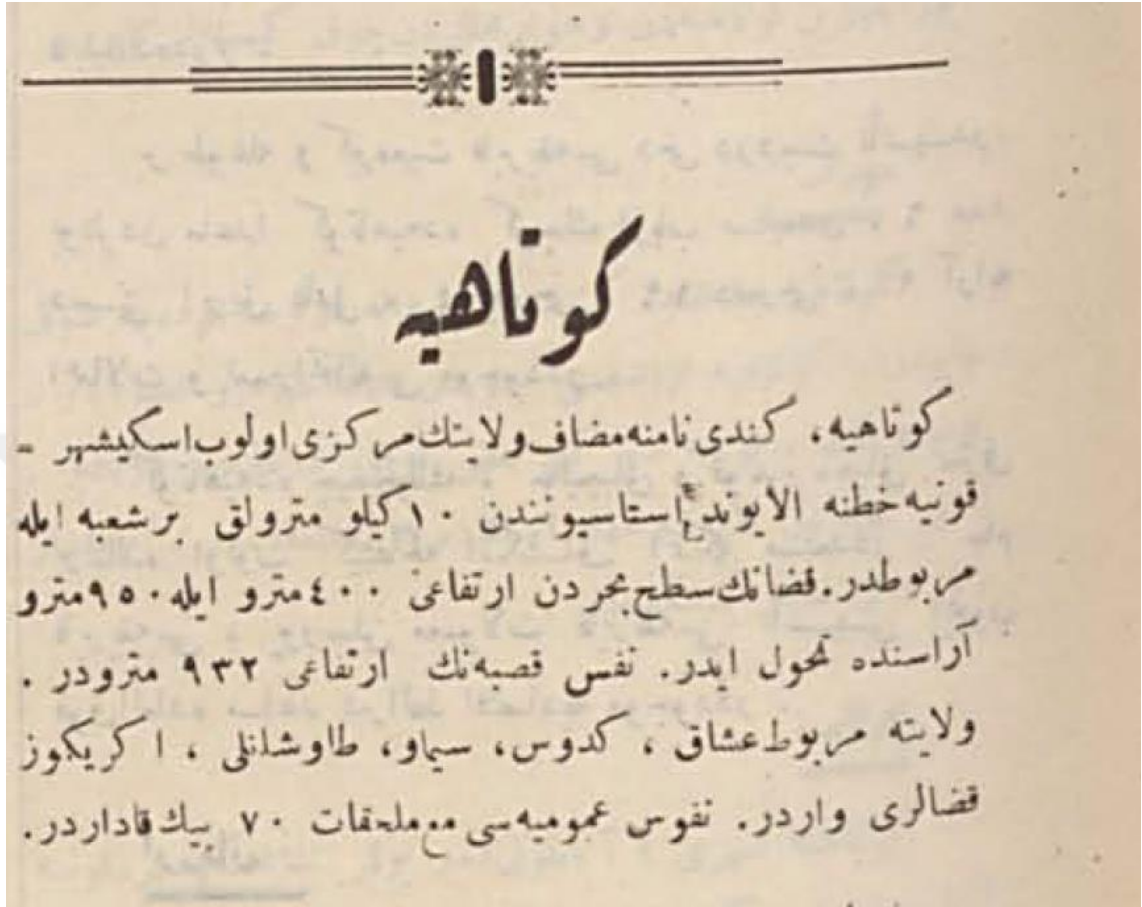 كوتاهيه
كوتاهيه، كندی نامنه مضاف ولايتك مركزی اولوب اسكيشهر -
قونيه خطنه الايوند استاسيونندن ١٠ كيلو مترولق بر شعبه ايله
مربوطدر. قضانك سطح بحردن ارتفاعی ٤٠٠ مترو ايله ٩٥٠ مترو
آراسنده تحول ايدر. نفس قصبه نك ارتفاعی ٩٣٢ مترودر.
ولايته مربوط عشاق، كدوس، سيماو، طاوشانلی، اكريكوز
قضالری واردر. نفوس عموميه سی مع ملحقات ٧٠ بيك قاداردر.